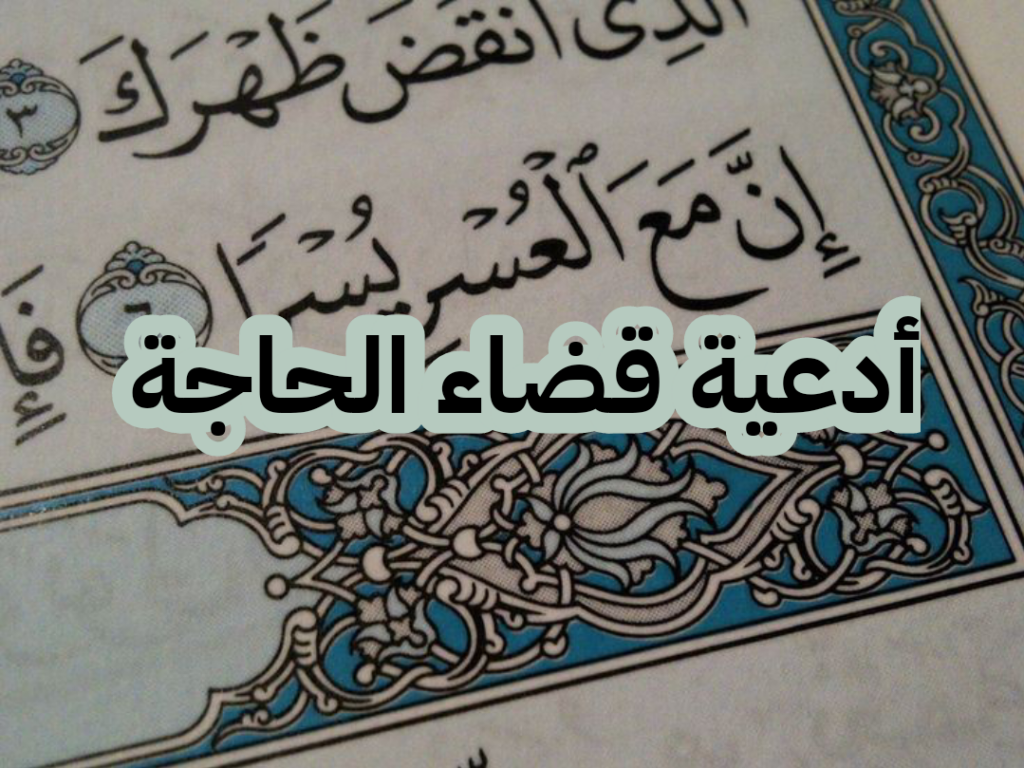 ٱلَّذِىٓ أَنقَضَ ظَهْرَكَ ٣
إِنَّ مَعَ ٱلْعُسْرِ يُسْرًا ٦
أدعية قضاء الحاجة